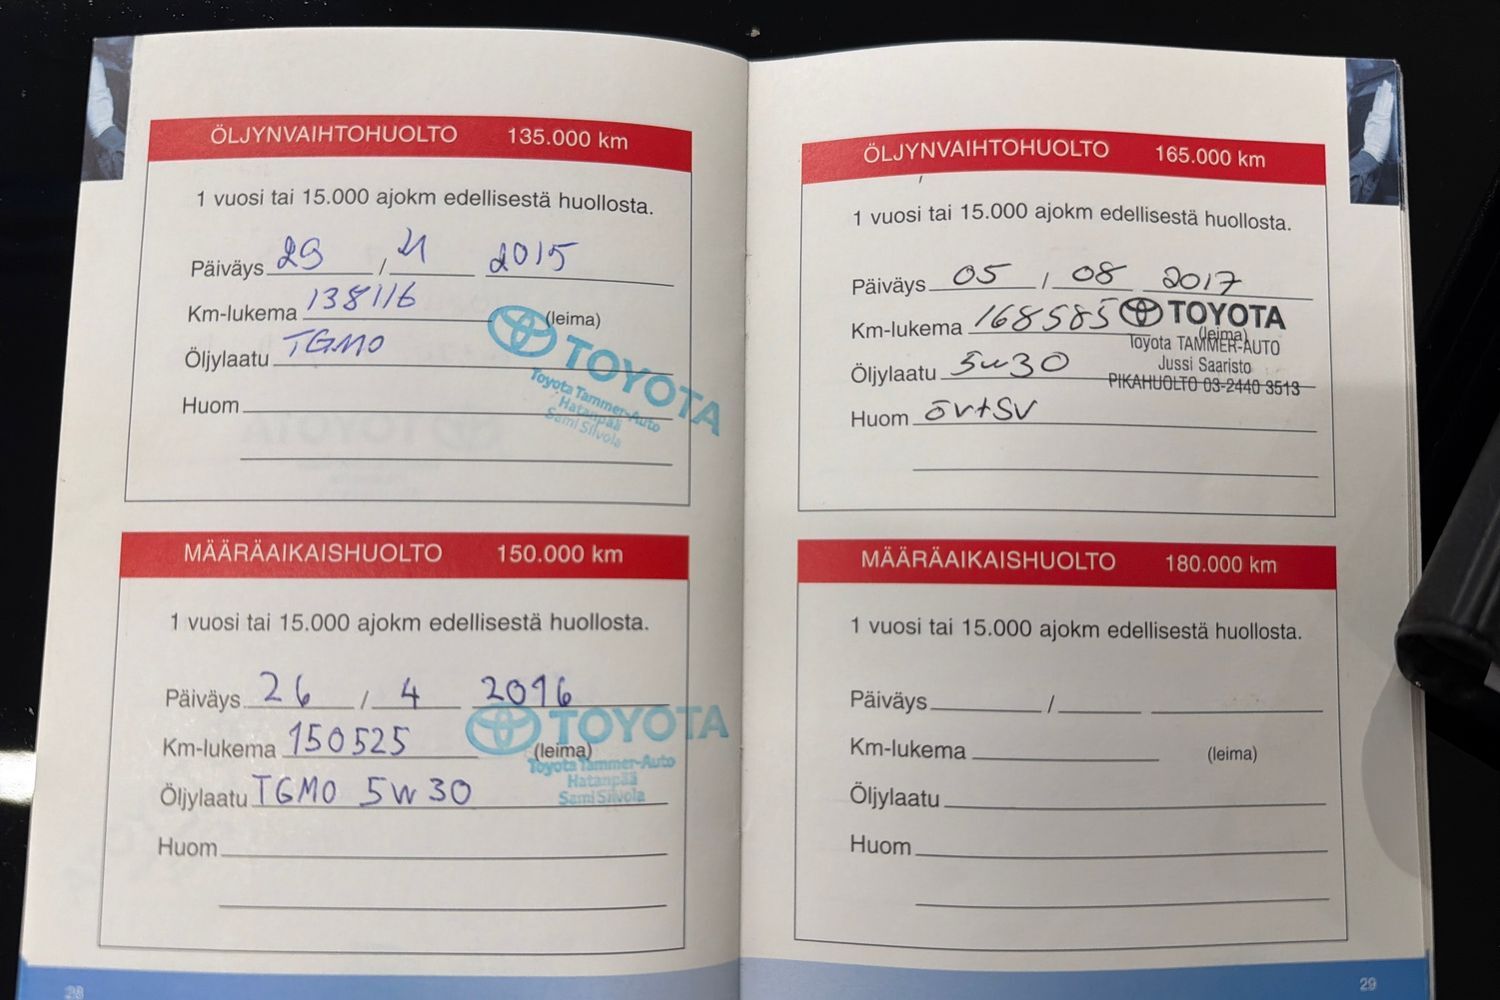 ÖLJYNVAIHTOHUOLTO 135.000 km
1 vuosi tai 15.000 ajokm edellisestä huollosta.
Päiväys 29 / 2015
Km-lukema 138116 (leima)
Öljylaatu TGMO
Huom
TOYOTA
Toyota Tammer-Auto
Hatanpää
Sami Silvola
MÄÄRÄAIKAISHUOLTO 150.000 km
1 vuosi tai 15.000 ajokm edellisestä huollosta.
Päiväys 26 / 4 2016
Km-lukema 150525 (leima)
Öljylaatu TGMO 5W30
Huom
TOYOTA
Toyota Tammer-Auto
Hatanpää
Sami Silvola
28
ÖLJYNVAIHTOHUOLTO 165.000 km
1 vuosi tai 15.000 ajokm edellisestä huollosta.
Päiväys 05 / 08 2017
Km-lukema 168585 (leima)
Öljylaatu 5w30
Huom öv+sv
TOYOTA
Toyota TAMMER-AUTO
Jussi Saaristo
PIKAHUOLTO 03-2440 3513
MÄÄRÄAIKAISHUOLTO 180.000 km
1 vuosi tai 15.000 ajokm edellisestä huollosta.
Päiväys /
Km-lukema (leima)
Öljylaatu
Huom
29